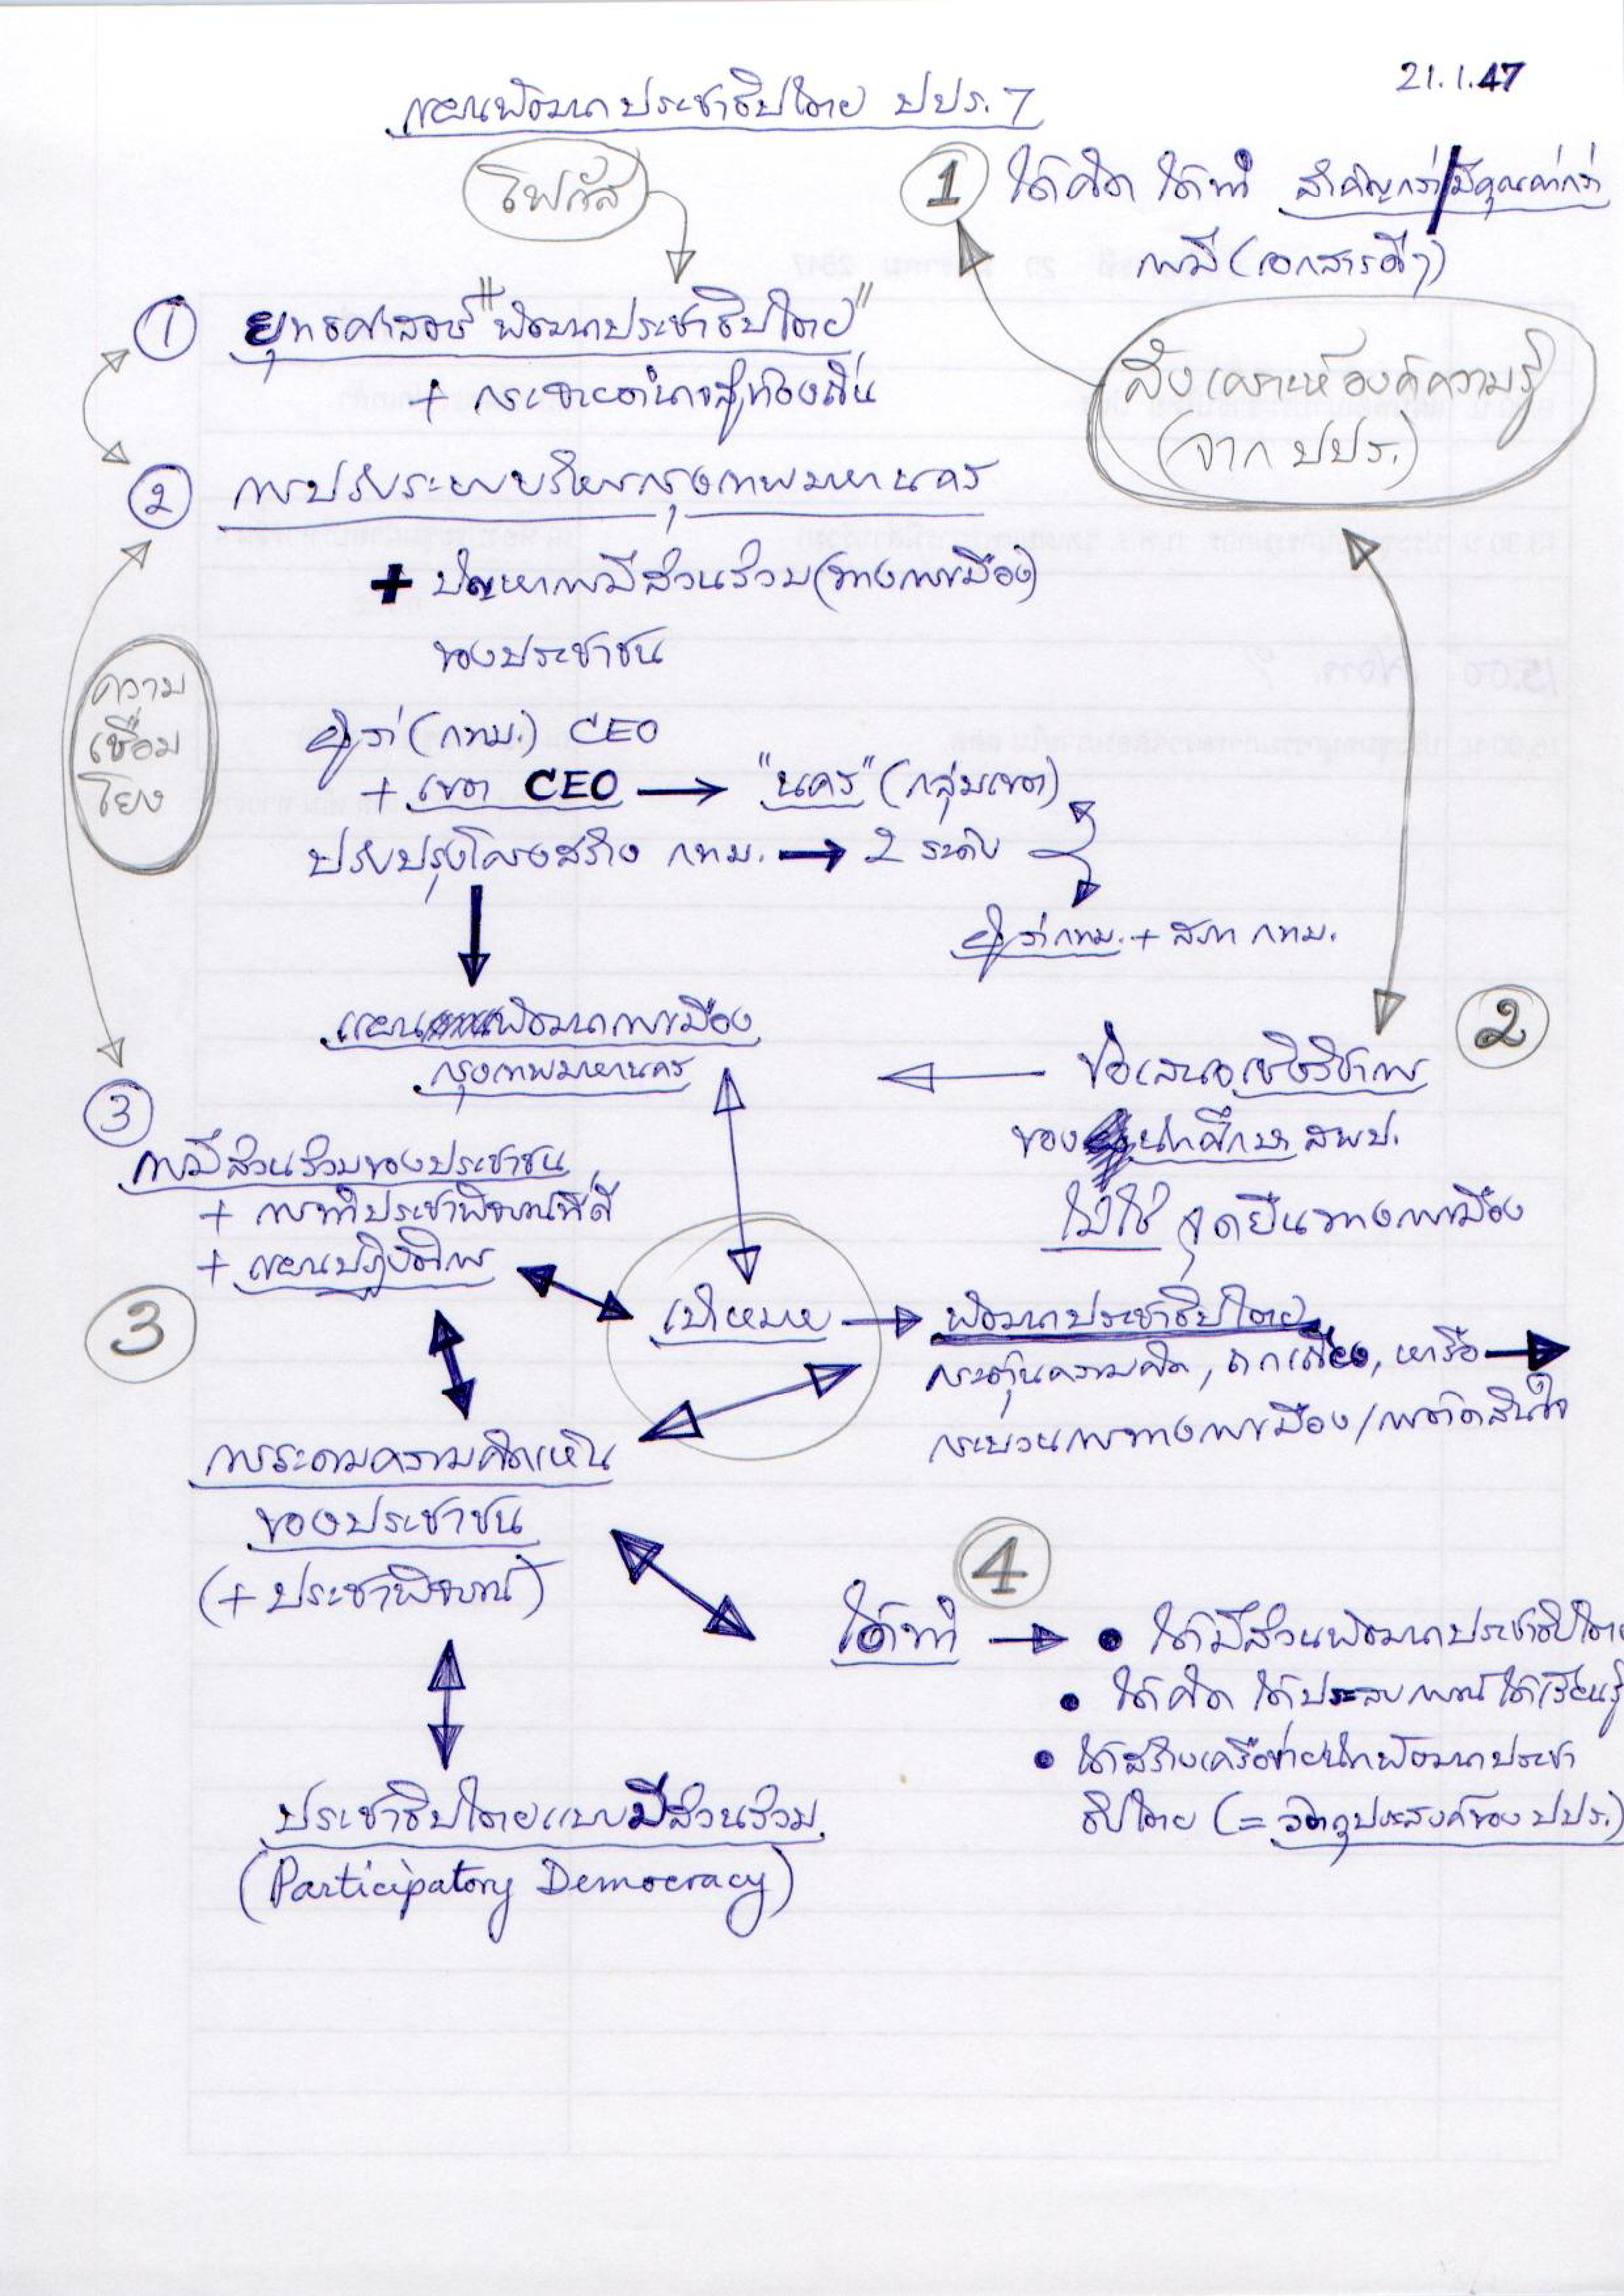 21.1.47
แผนพัฒนาประชาธิปไตย ปปร.7
โฟกัส
1 ได้คิด ได้ทำ สำคัญกว่า/มีคุณค่ากว่า
การมี (เอกสารดีๆ)
① ยุทธศาสตร์ "พัฒนาประชาธิปไตย"
+ กระจายอำนาจสู่ท้องถิ่น
สังเคราะห์องค์ความรู้
(จาก ปปร.)
② การปรับระบบบริหารกรุงเทพมหานคร
+ ปัญหาการมีส่วนร่วม (ทางการเมือง)
ของประชาชน
ความ
เชื่อม
โยง
ผู้ว่า (กทม.) CEO
+ เขต CEO → "นคร" (กลุ่มเขต)
ปรับปรุงโครงสร้าง กทม. → 2 ระดับ
ผู้ว่า กทม. + สภา กทม.
แผนพัฒนาการเมือง
กรุงเทพมหานคร
2
ข้อเสนอเชิงวิชาการ
ของนักศึกษา สพป.
ไม่ใช่ จุดยืนทางการเมือง
③
การมีส่วนร่วมของประชาชน
+ การทำประชาพิจารณ์ที่ดี
+ แผนปฏิบัติการ
3
เป้าหมาย → พัฒนาประชาธิปไตย
กระตุ้นความคิด, ถกเถียง, หารือ →
กระบวนการทางการเมือง/การตัดสินใจ
การระดมความคิดเห็น
ของประชาชน
(+ ประชาพิจารณ์)
4
ได้ทำ → • ได้มีส่วนพัฒนาประชาธิปไตย
• ได้คิด ได้ประสบการณ์ ได้เรียนรู้
• ได้สร้างเครือข่ายนักพัฒนาประชา
ธิปไตย (= วัตถุประสงค์ของ ปปร.)
ประชาธิปไตยแบบมีส่วนร่วม
(Participatory Democracy)